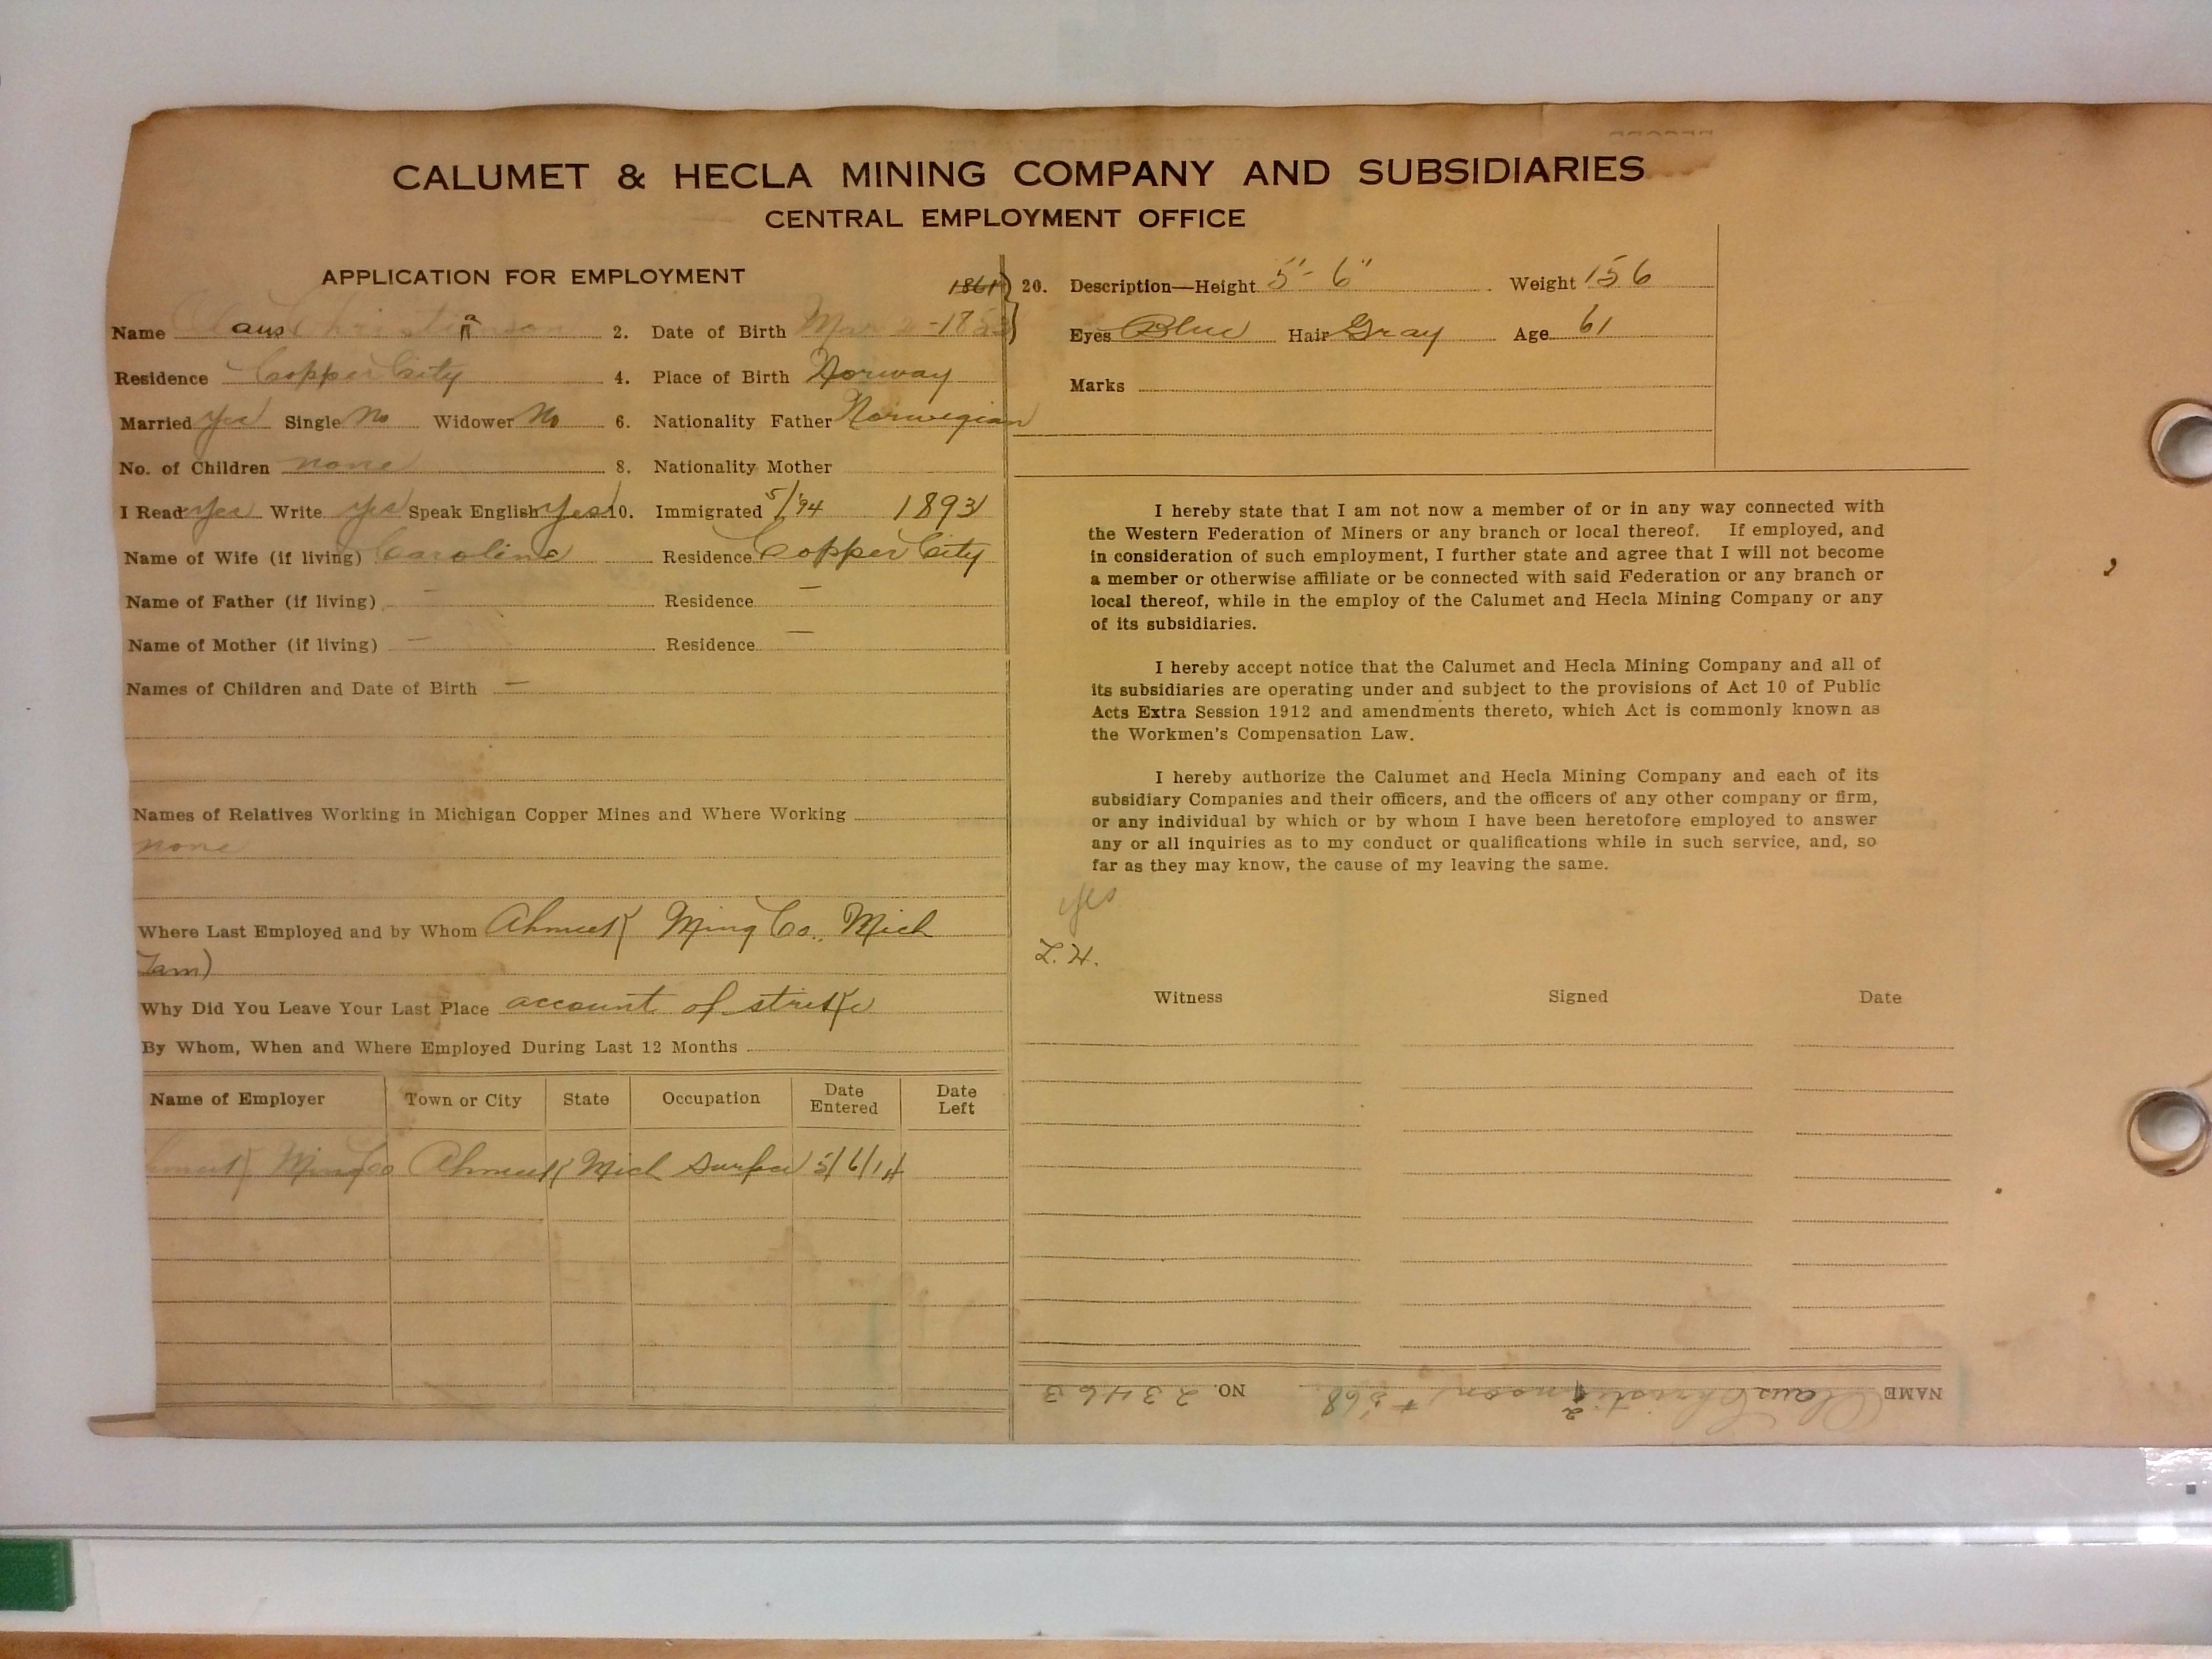 CALUMET & HECLA MINING COMPANY AND SUBSIDIARIES
CENTRAL EMPLOYMENT OFFICE
APPLICATION FOR EMPLOYMENT
1861
Name Claus Christianson 2. Date of Birth Mar -18
Residence Copper City 4. Place of Birth Norway
Married Yes Single No Widower No 6. Nationality Father Norwegian
No. of Children none 8. Nationality Mother
I Read Yes Write yes Speak English Yes 10. Immigrated 5/'94 1893
Name of Wife (if living) Caroline Residence Copper City
Name of Father (if living) – Residence –
Name of Mother (if living) – Residence –
Names of Children and Date of Birth –
Names of Relatives Working in Michigan Copper Mines and Where Working
none
Where Last Employed and by Whom Ahmeek Ming Co., Mich
Tam)
Why Did You Leave Your Last Place account of strike
By Whom, When and Where Employed During Last 12 Months
Name of Employer Town or City State Occupation Date Entered Date Left
Ahmeek Ming Co Ahmeek Mich Surface 5/6/14
20. Description—Height 5'- 6" Weight 156
Eyes Blue Hair Gray Age 61
Marks
I hereby state that I am not now a member of or in any way connected with
the Western Federation of Miners or any branch or local thereof. If employed, and
in consideration of such employment, I further state and agree that I will not become
a member or otherwise affiliate or be connected with said Federation or any branch or
local thereof, while in the employ of the Calumet and Hecla Mining Company or any
of its subsidiaries.
I hereby accept notice that the Calumet and Hecla Mining Company and all of
its subsidiaries are operating under and subject to the provisions of Act 10 of Public
Acts Extra Session 1912 and amendments thereto, which Act is commonly known as
the Workmen's Compensation Law.
I hereby authorize the Calumet and Hecla Mining Company and each of its
subsidiary Companies and their officers, and the officers of any other company or firm,
or any individual by which or by whom I have been heretofore employed to answer
any or all inquiries as to my conduct or qualifications while in such service, and, so
far as they may know, the cause of my leaving the same.
yes
L.H.
Witness Signed Date
NAME Claus Christianson + 568 NO. 23463